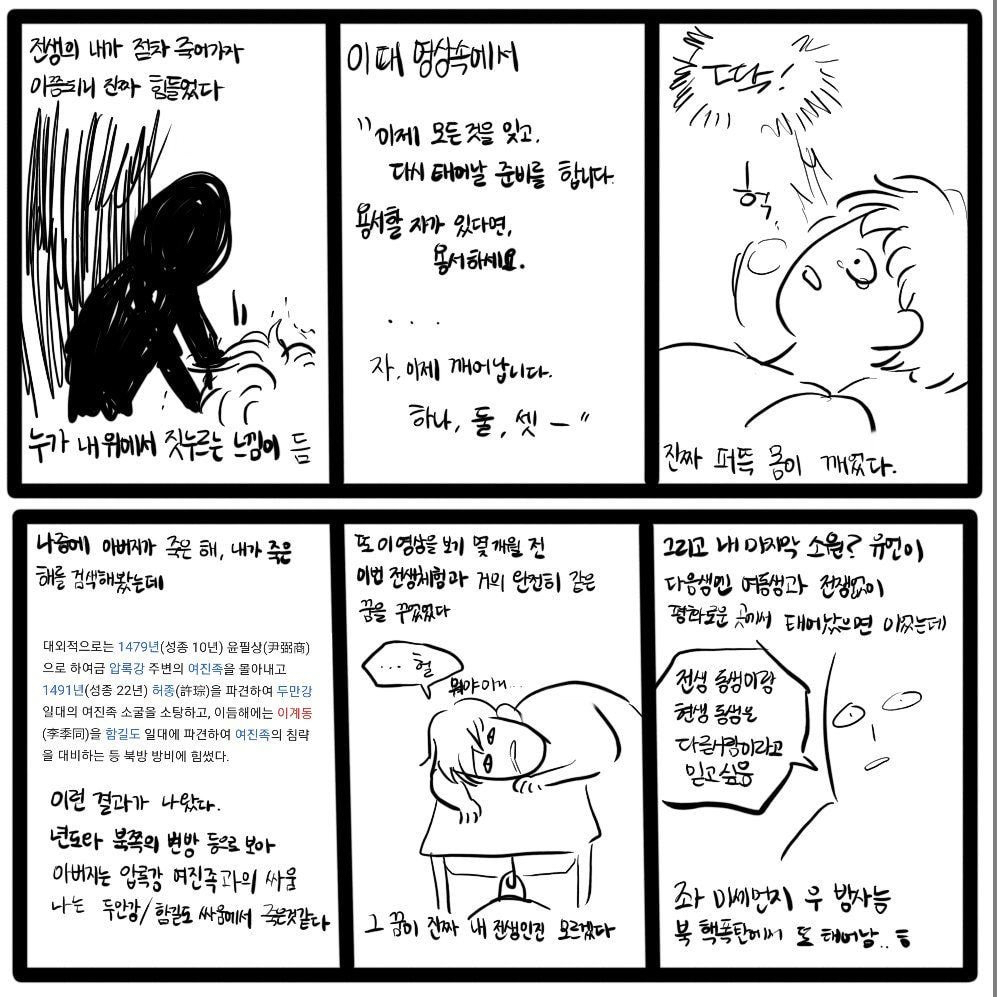 전생의 내가 점차 죽어가자
이쯤되니 진짜 힘들었다
누가 내 위에서 짓누르는 느낌이 듬
이 때 영상속에서
"이제 모든 것을 잊고,
다시 태어날 준비를 합니다.
용서할 자가 있다면,
용서하세요.
. . .
자, 이제 깨어납니다.
하나, 둘, 셋 ―"
딱!
헉
진짜 퍼뜩 몸이 깨었다.
나중에 아버지가 죽은 해, 내가 죽은
해를 검색해봤는데
대외적으로는 1479년(성종 10년) 윤필상(尹弼商)
으로 하여금 압록강 주변의 여진족을 몰아내고
1491년(성종 22년) 허종(許琮)을 파견하여 두만강
일대의 여진족 소굴을 소탕하고, 이듬해에는 이계동
(李季同)을 함길도 일대에 파견하여 여진족의 침략
을 대비하는 등 북방 방비에 힘썼다.
이런 결과가 나왔다.
년도라 북쪽의 변방 등으로 보아
아버지는 압록강 여진족과의 싸움
나는 두만강/함길도 싸움에서 죽은것같다
또 이 영상을 보기 몇 개월 전
이번 전생체험과 거의 완전히 같은
꿈을 꾸었었다
... 헐
뭐야 이거...
그 꿈이 진짜 내 전생인진 모르겠다
그리고 내 마지막 소원? 유언이
다음생엔 여동생과 전쟁없이
평화로운 곳에서 태어났으면 이었는데
전생 동생이랑
현생 동생은
다른사람이라고
믿고싶음
좌 미세먼지 우 방사능
북 핵폭탄에서 또 태어남..ㅎ